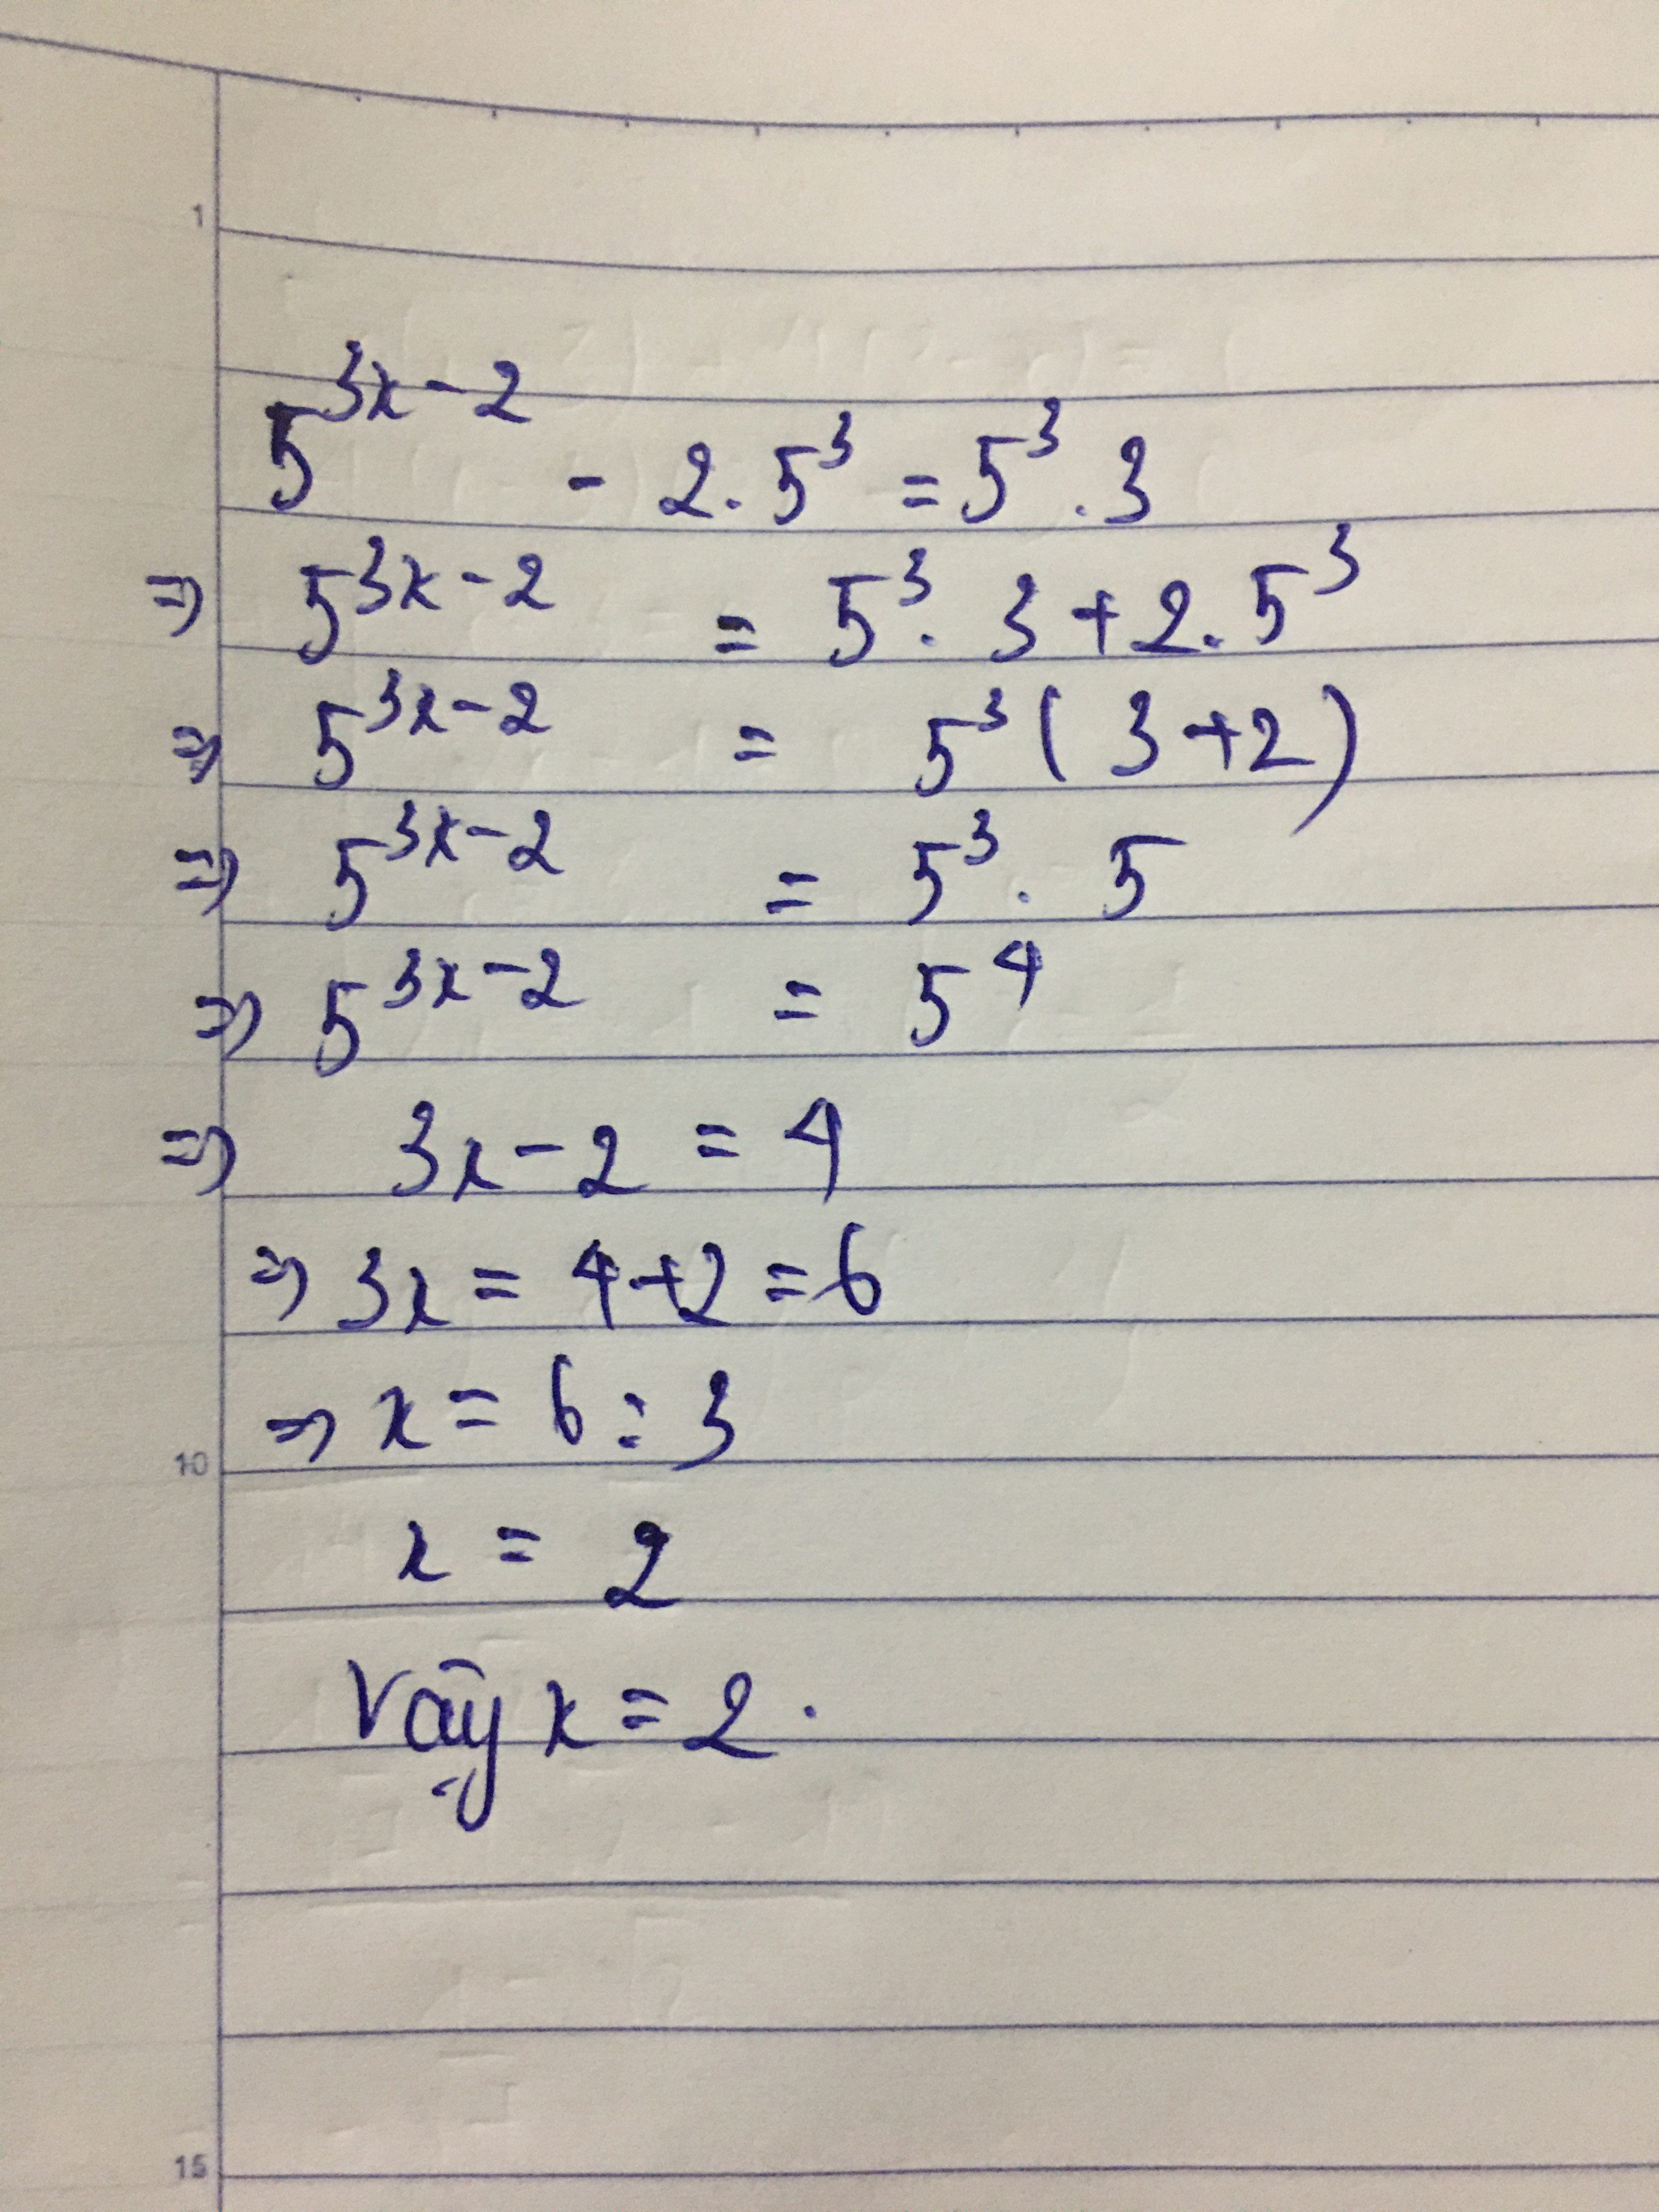 1
5^{3x-2} - 2.5³ = 5³.3
=> 5^{3x-2} = 5³.3+2.5³
=> 5^{3x-2} = 5³(3+2)
=> 5^{3x-2} = 5³.5
=> 5^{3x-2} = 5⁴
=> 3x-2 = 4
=> 3x = 4+2 = 6
=> x = 6:3
10
x = 2
Vậy x = 2.
15